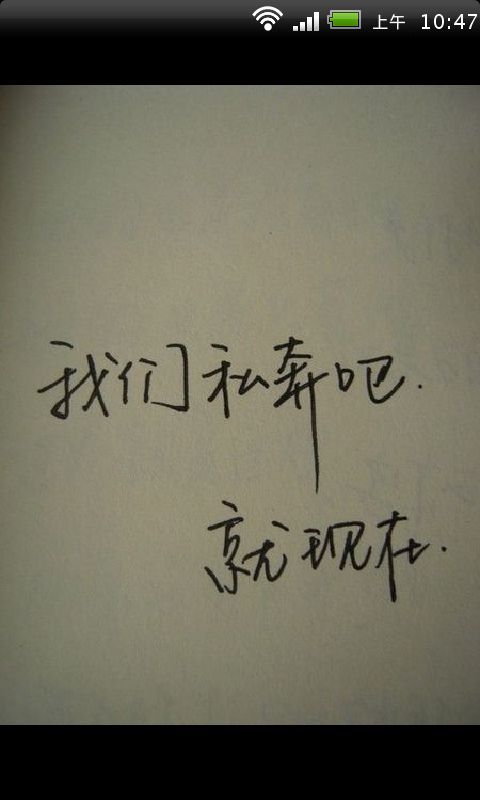 上午 10:47
我们私奔吧.
就现在.